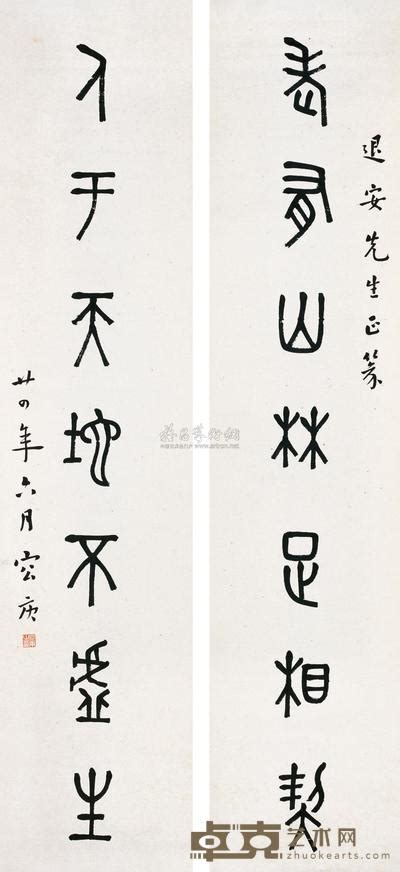 退安先生正篆
有山林足相契
人于天地不虛生
廿四年六月容庚
卓克艺术网
www.zhuokearts.com